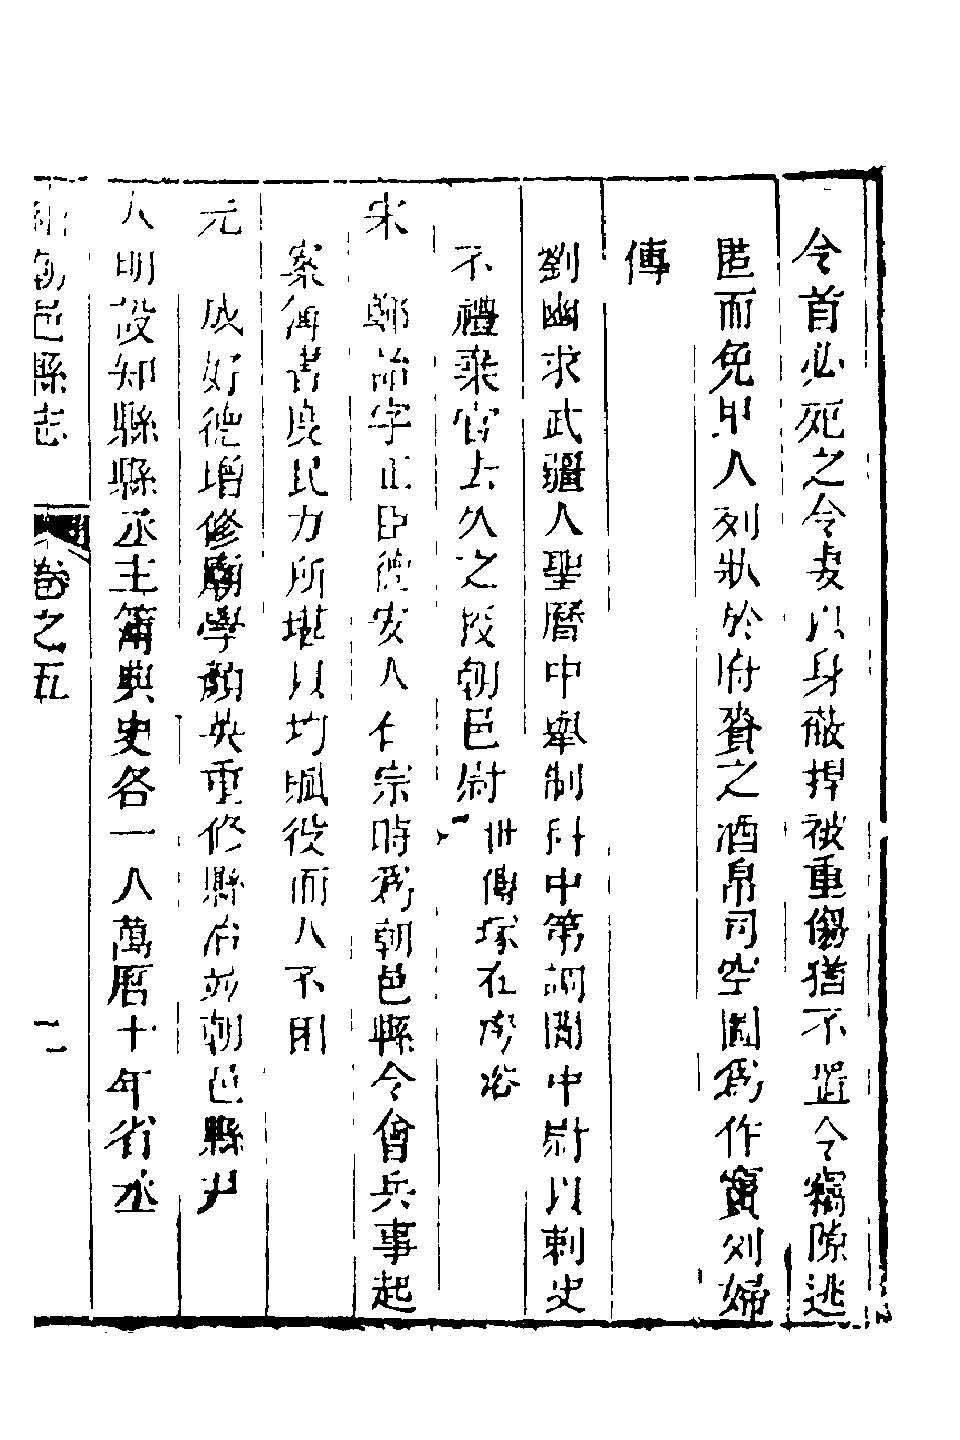 令首必死之令妻以身蔽捍被重傷猶不置令竊隙逃
匿而免里人列狀於府賚之酒帛司空圖為作竇列婦
傳
劉幽求武疆人聖曆中舉制科中第調閬中尉以刺史
不禮棄官去久之授朝邑尉 世傳塚在 俗
宋 鄭詁字正臣德安人仁宗時為朝邑縣令會兵事起
案簿書度民力所堪以均賦役而人不困
元 成好德增修廟學顏英重修縣治並朝邑縣尹
大明設知縣縣丞主簿典史各一人萬曆十年省丞
朝邑縣志 卷之五 二